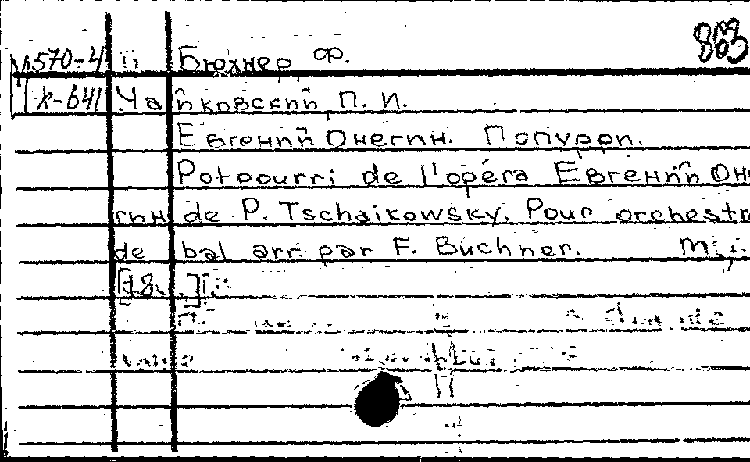 803
М570-4 П Бюхнер Ф.
Х-641 Чайковский, П. И.
Евгений Онегин. Попурри.
Potpourri de l'opéra Евгений Оне
гин de P. Tschaikowsky. Pour orchestr
de bal arr par F. Büchner. М.,
[18 .]